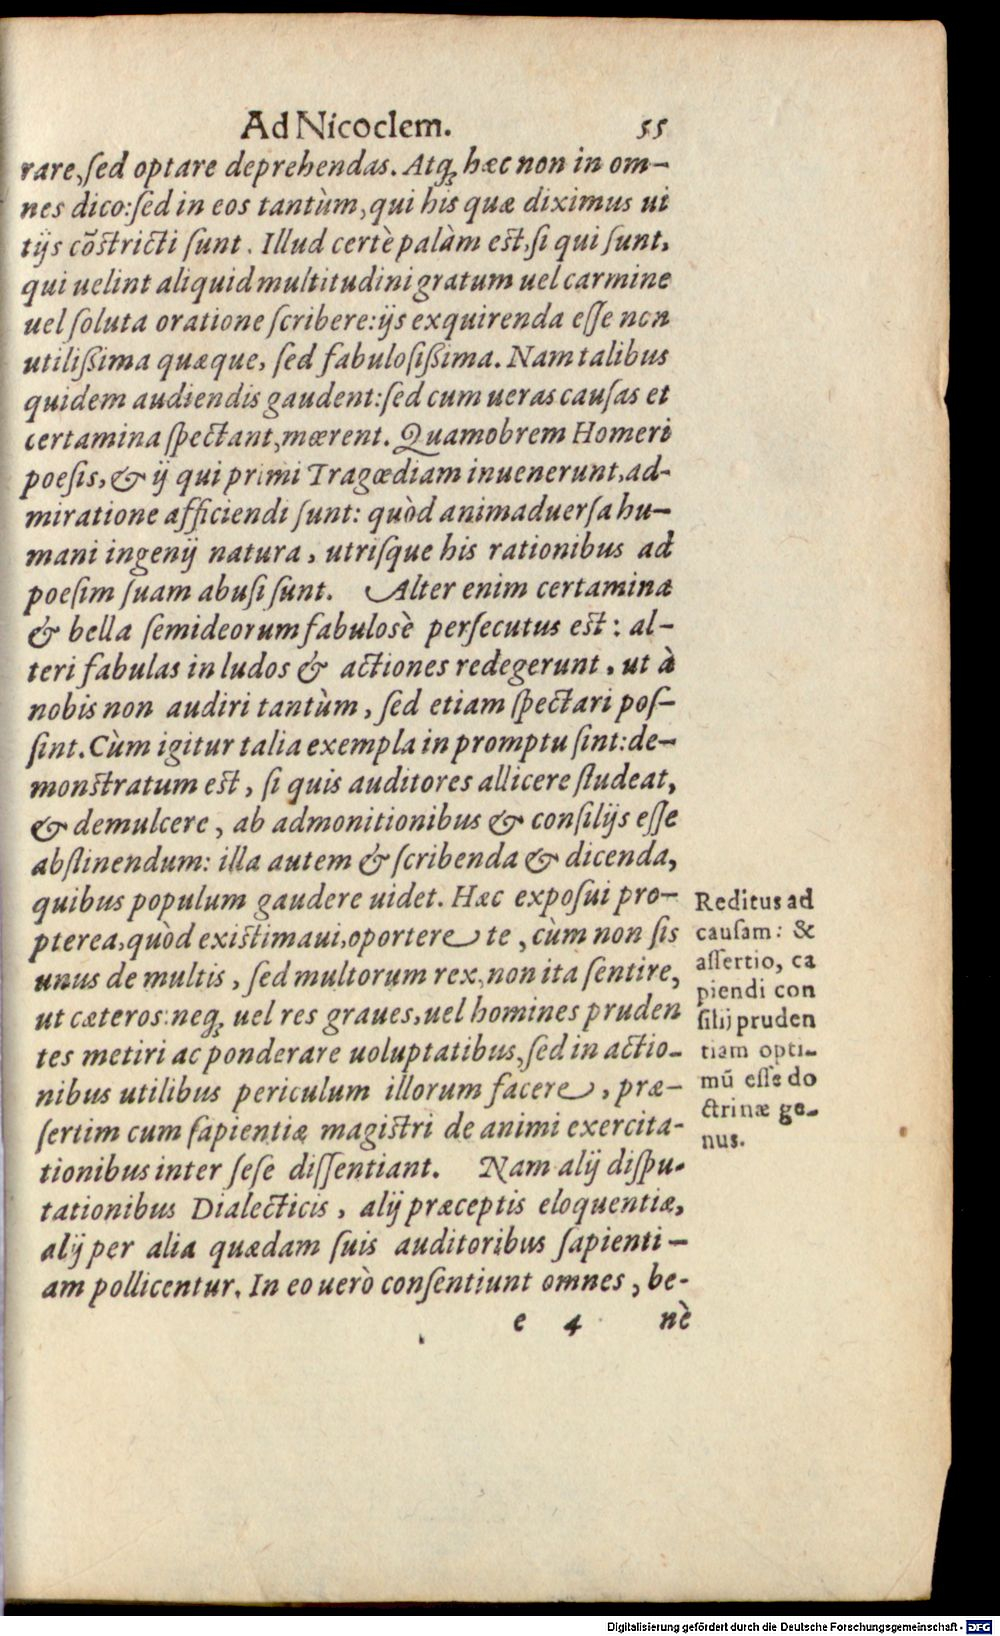 Ad Nicoclem. 55
rare, ſed optare deprehendas. Atq́; hæc non in om-
nes dico: ſed in eos tantùm, qui his quæ diximus ui
tijs cõſtricti ſunt. Illud certè palàm eſt, ſi qui ſunt,
qui uelint aliquid multitudini gratum uel carmine
uel ſoluta oratione ſcribere: ijs exquirenda eſſe non
utilißima quæque, ſed fabuloſißima. Nam talibus
quidem audiendis gaudent: ſed cum ueras cauſas et
certamina ſpectant, mœrent. Quamobrem Homeri
poeſis, & ij qui primi Tragœdiam inuenerunt, ad-
miratione afficiendi ſunt: quòd animaduerſa hu-
mani ingenij natura, utriſque his rationibus ad
poeſim ſuam abuſi ſunt. Alter enim certamina
& bella ſemideorum fabulosè perſecutus eſt: al-
teri fabulas in ludos & actiones redegerunt, ut à
nobis non audiri tantùm, ſed etiam ſpectari poſ-
ſint. Cùm igitur talia exempla in promptu ſint: de-
monſtratum eſt, ſi quis auditores allicere ſtudeat,
& demulcere, ab admonitionibus & conſilijs eſſe
abſtinendum: illa autem & ſcribenda & dicenda,
quibus populum gaudere uidet. Hæc expoſui pro-
pterea, quòd exiſtimaui, oportere te, cùm non ſis
unus de multis, ſed multorum rex, non ita ſentire,
ut cæteros: neq́; uel res graues, uel homines pruden
tes metiri ac ponderare uoluptatibus, ſed in actio-
nibus utilibus periculum illorum facere, præ-
ſertim cum ſapientiæ magiſtri de animi exercita-
tionibus inter ſeſe diſſentiant. Nam alij diſpu-
tationibus Dialecticis, alij præceptis eloquentiæ,
alij per alia quædam ſuis auditoribus ſapienti-
am pollicentur. In eo uerò conſentiunt omnes, be-
e 4 nè
Reditus ad
cauſam: &
aſſertio, ca
piendi con
ſilij pruden
tiam opti-
mũ eſſe do
ctrinæ ge-
nus.
Digitalisierung gefördert durch die Deutsche Forschungsgemeinschaft - DFG